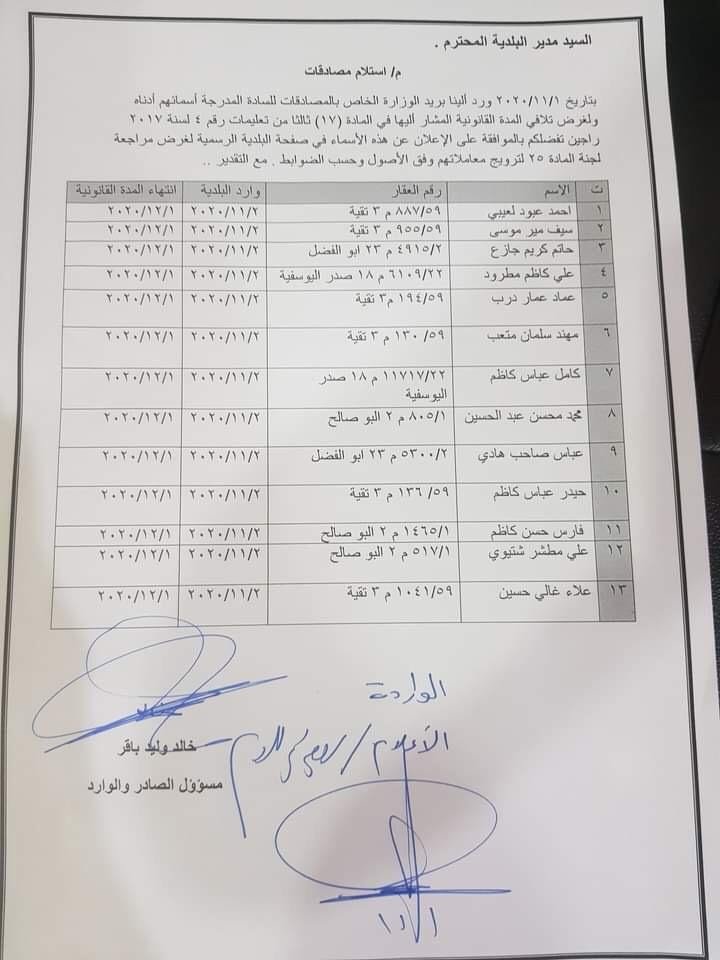 السيد مدير البلدية المحترم .
م/ استلام مصادقات
بتاريخ ٢٠٢٠/١١/١ ورد ألينا بريد الوزارة الخاص بالمصادقات للسادة المدرجة أسمائهم أدناه
ولغرض تلافي المدة القانونية المشار أليها في المادة (١٧) ثالثا من تعليمات رقم ٤ لسنة ٢٠١٧
راجين تفضلكم بالموافقة على الإعلان عن هذه الأسماء في صفحة البلدية الرسمية لغرض مراجعة
لجنة المادة ٢٥ لترويج معاملاتهم وفق الأصول وحسب الضوابط . مع التقدير ..
ت الاسم رقم العقار وارد البلدية انتهاء المدة القانونية
١ احمد عبود لعيبي ٨٨٧/٥٩ م ٣ تقية ٢٠٢٠/١١/٢ ٢٠٢٠/١٢/١
٢ سيف مير موسى ٩٥٥/٥٩ م ٣ تقية ٢٠٢٠/١١/٢ ٢٠٢٠/١٢/١
٣ حاتم كريم جازع ٤٩١٥/٢ م ٢٣ ابو الفضل ٢٠٢٠/١١/٢ ٢٠٢٠/١٢/١
٤ علي كاظم مطرود ٦١٠٩/٢٢ م ١٨ صدر اليوسفية ٢٠٢٠/١١/٢ ٢٠٢٠/١٢/١
٥ عماد عمار درب ١٩٤/٥٩ م٣ تقية ٢٠٢٠/١١/٢ ٢٠٢٠/١٢/١
٦ مهند سلمان متعب ١٣٠/٥٩ م ٣ تقية ٢٠٢٠/١١/٢ ٢٠٢٠/١٢/١
٧ كامل عباس كاظم ١١٧١٧/٢٢ م ١٨ صدر ٢٠٢٠/١١/٢ ٢٠٢٠/١٢/١
اليوسفية
٨ محمد محسن عبد الحسين ٨٠٥/١ م ٢ البو صالح ٢٠٢٠/١١/٢ ٢٠٢٠/١٢/١
٩ عباس صاحب هادي ٥٣٠٠/٢ م ٢٣ ابو الفضل ٢٠٢٠/١١/٢ ٢٠٢٠/١٢/١
١٠ حيدر عباس كاظم ١٣٦/٥٩ م ٣ تقية ٢٠٢٠/١١/٢ ٢٠٢٠/١٢/١
١١ فارس حسن كاظم ١٤٦٥/١ م ٢ البو صالح ٢٠٢٠/١١/٢ ٢٠٢٠/١٢/١
١٢ علي مطشر شتيوي ٥١٧/١ م ٢ البو صالح ٢٠٢٠/١١/٢ ٢٠٢٠/١٢/١
١٣ علاء غالي حسين ١٠٤١/٥٩ م ٣ تقية ٢٠٢٠/١١/٢ ٢٠٢٠/١٢/١
الواردة
الأعلام /
خالد وليد باقر
مسؤوُل الصادر والوارد